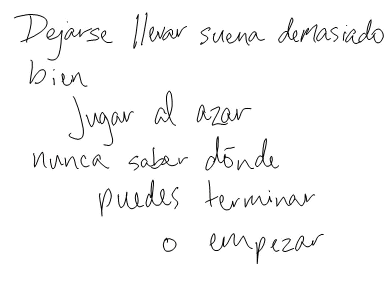 Dejarse llevar suena demasiado
bien
Jugar al azar
nunca saber dónde
puedes terminar
o empezar